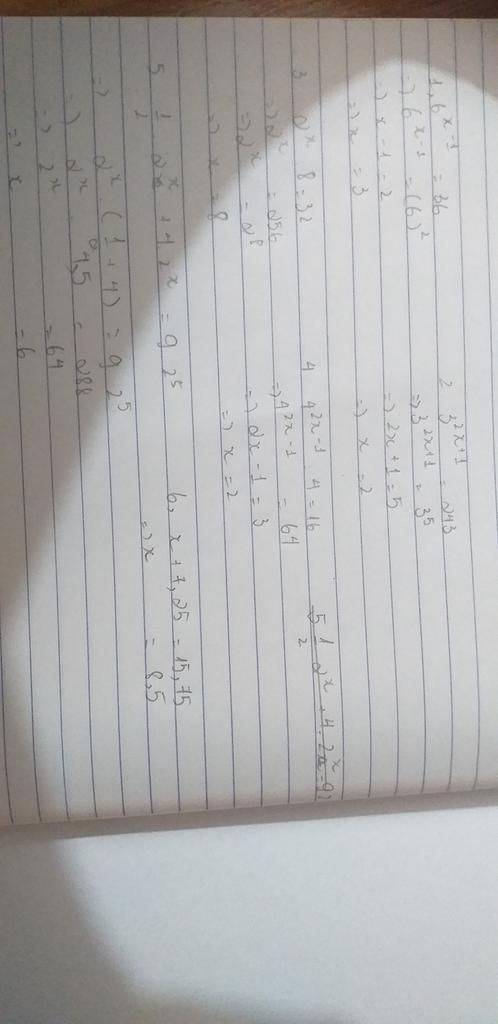 1, 6^x-1 = 36
=) 6^x-1 = (6)^2
=) x-1 = 2
=) x = 3
2 3^2x+1 = 243
=) 3^2x+1 = 3^5
=) 2x+1 = 5
=) x = 2
3 2^x 8 = 32
=) 2^x = 256
=) 2^x = 2^8
=) x = 8
4 4^2x-1 4 = 16
=) 4^2x-1 = 64
=) 2x-1 = 3
=) x = 2
5 1/2 2^x + 4 2^x = 9 2
5 1/2 2^x + 4 2^x = 9 2^5
=) 2^x (1 + 4) = 9 2^5
=) 2^x 4,5 = 288
=) 2^x = 64
=) x = 6
6, x + 7,25 = 15,75
=) x = 8,5